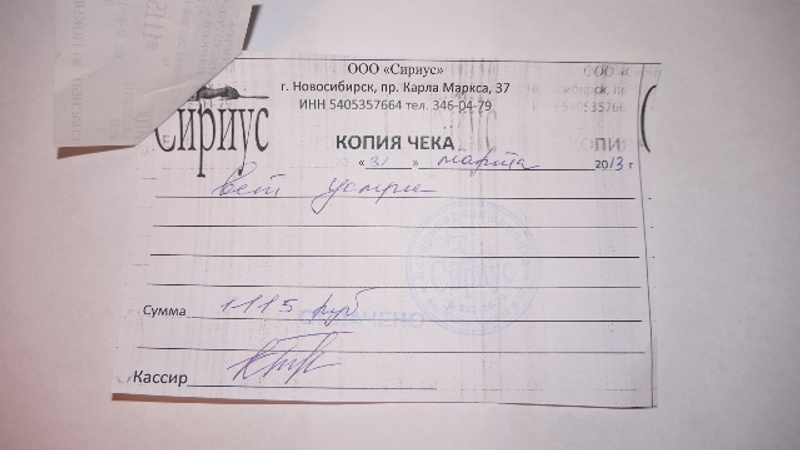 ООО «Сириус»
г. Новосибирск, пр. Карла Маркса, 37
ИНН 5405357664 тел. 346-04-79
Сириус
КОПИЯ ЧЕКА
« 31 » марта 2013 г
вет услуги
Сириус
Сумма 1115 руб
ОПЛАЧЕНО
Кассир
ООО «Си
КОПИ
=1115